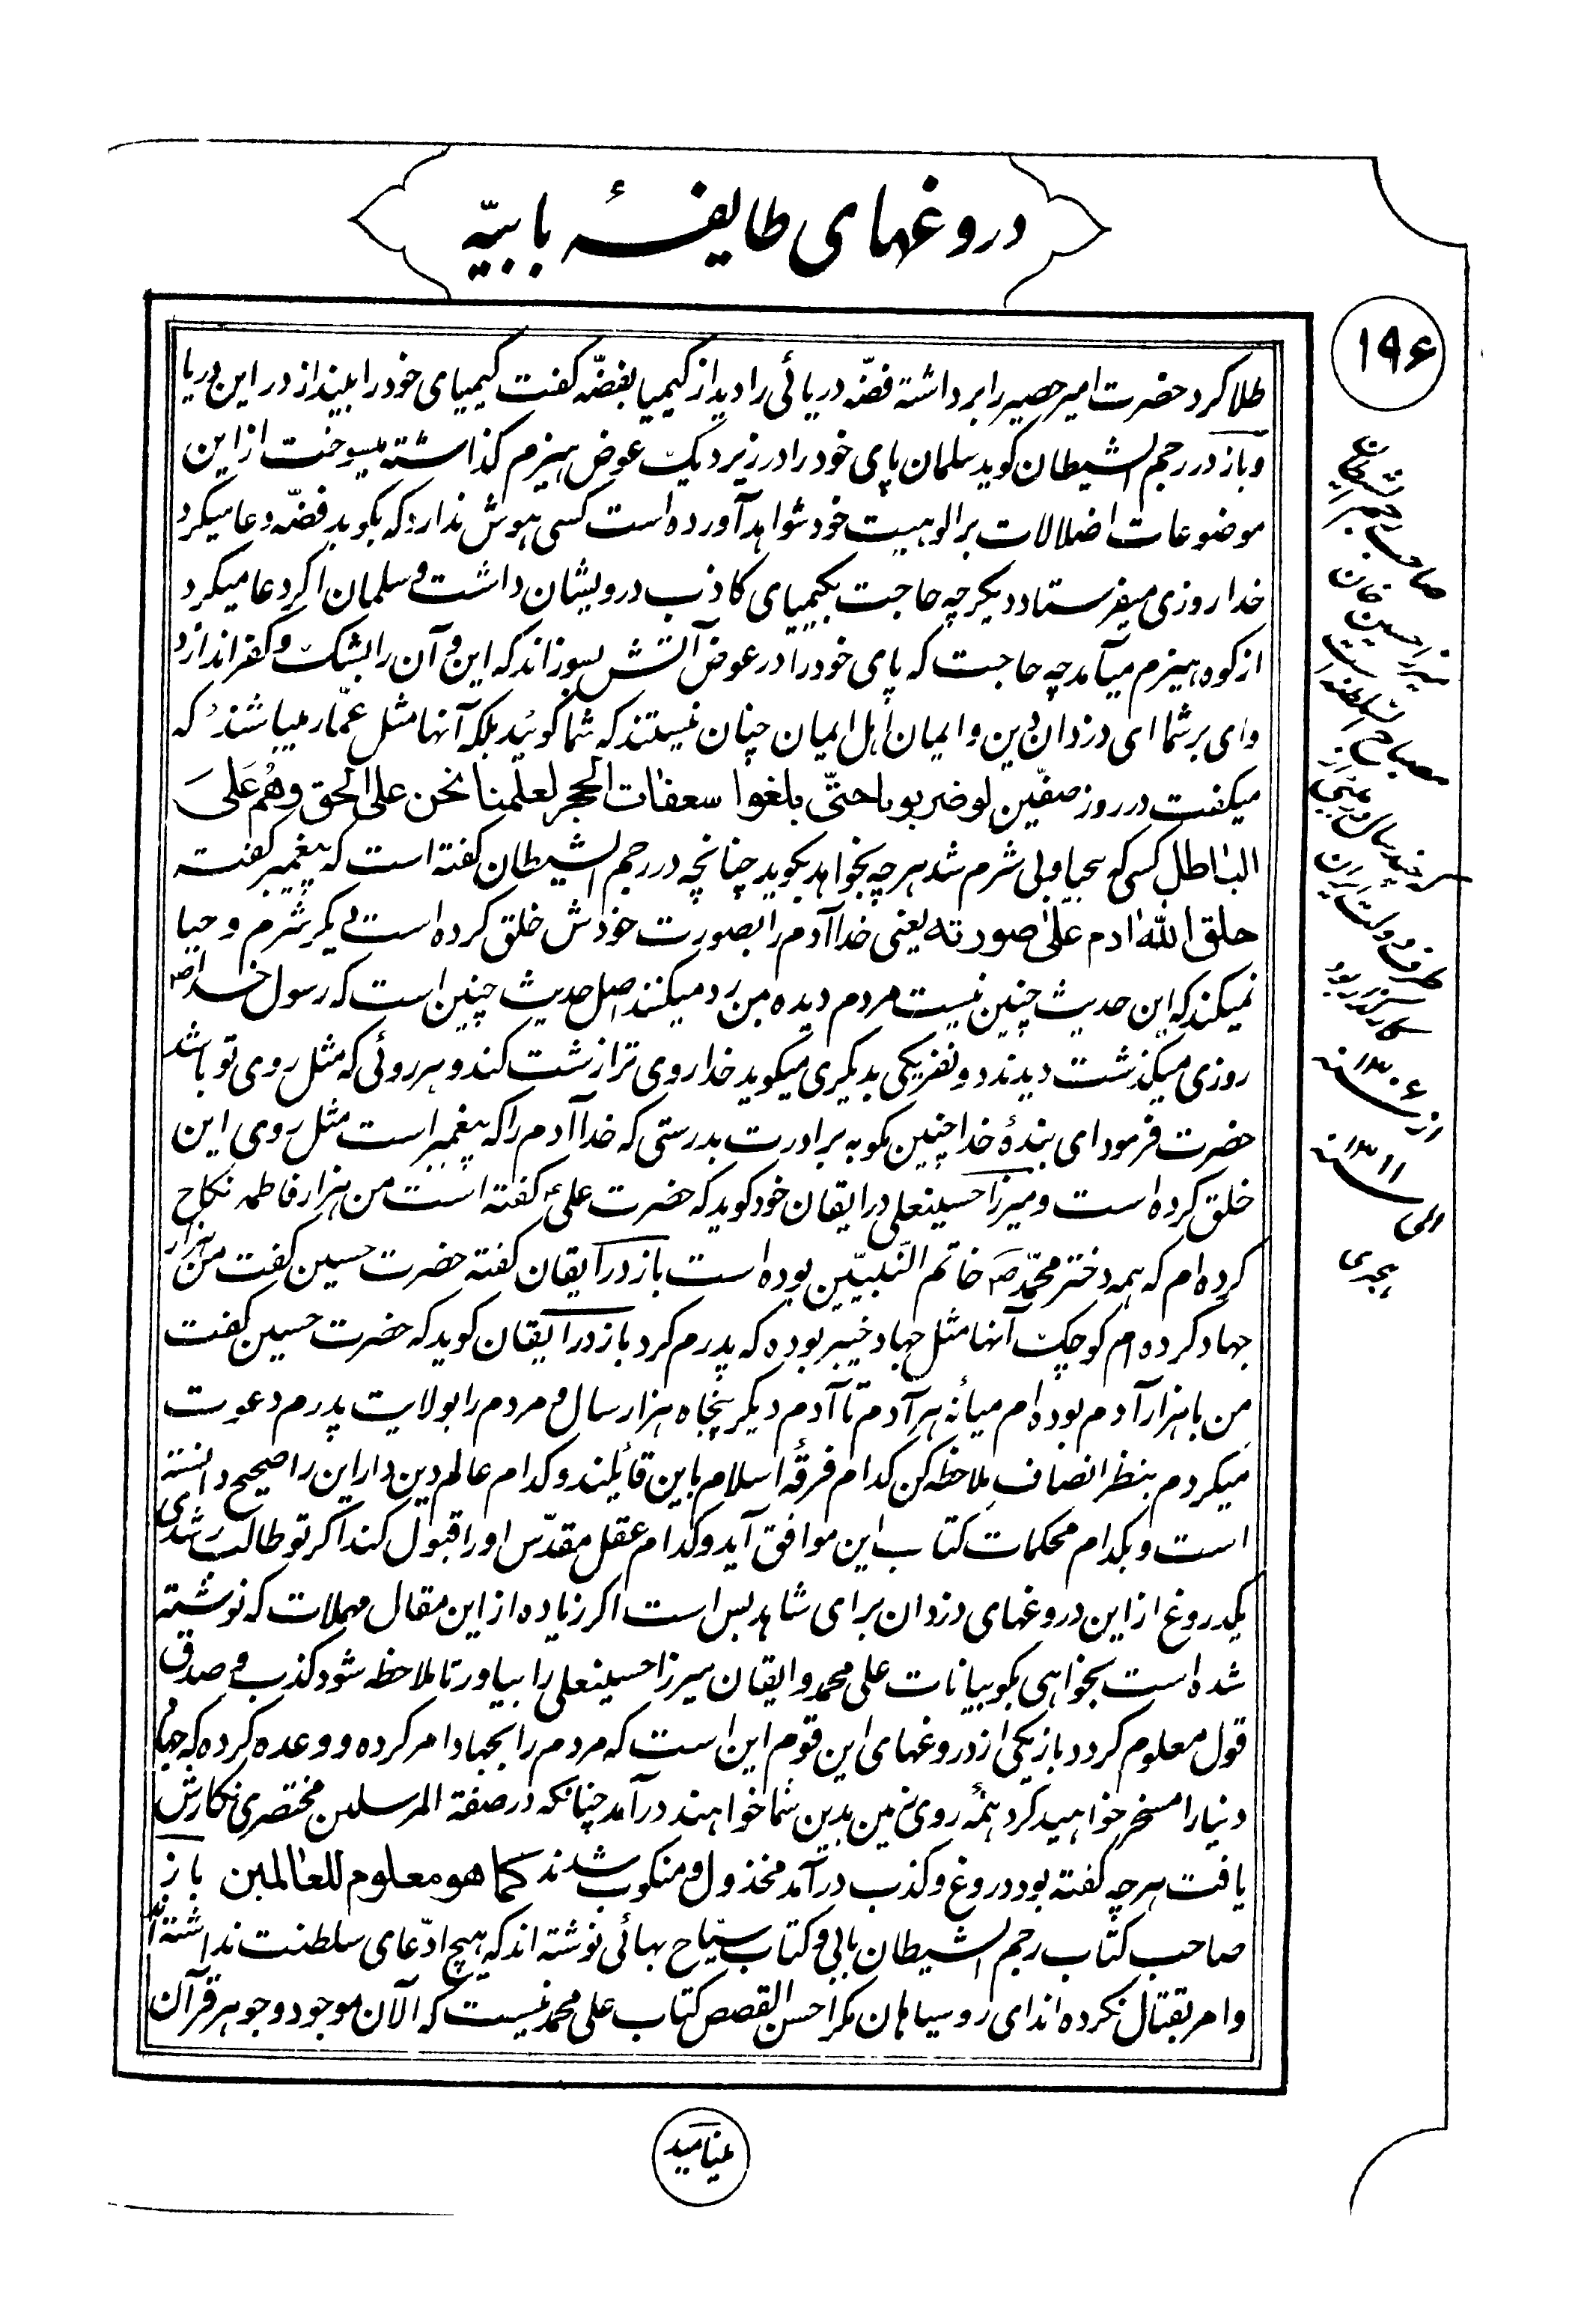 دروغهای طایفهٔ بابیّه
۱۹۶
طلا کرد حضرت امیر حصیر را برداشته فضّه دریائی را دید از کیمیا بفضّه کفت کیمیای خود را بینداز در این دریا
و باز در رجم الشیطان کوید سلمان پای خود را در زیر دیک عوض هیزم کذاشته میسوخت از این
موضوعات اضلالات بر الوهیت خود شواهد آورده است کسی هوش ندارد که بکوید فضّه دعا میکرد
خدا روزی میفرستاد دیکر چه حاجت بکیمیای کاذب درویشان داشت و سلمان اکر دعا میکرد
از کوه هیزم میآمد چه حاجت که پای خود را در عوض آتش بسوزاند که این و آن را بشک و کفر اندازد
وای بر شما ای دزدان دین و ایمان اهل ایمان چنان نیستند که شما کوئید بلکه آنها مثل عمّار میباشند که
میکفت در روز صفّین لو ضربونا حتّی بلغوا سعفات الحجر لعلمنا نحن علی الحق وهُم عَلیَ
الباطل کسی که بیحیا و بی شرم شد هر چه بخواهد بکوید چنانچه در رجم الشیطان کفته است که پیغمبر کفت
خلق الله ادم علیٰ صورته یعنی خدا آدم را بصورت خودش خلق کرده است دیکر شرم و حیا
نمیکند که این حدیث چنین نیست مردم دیده من رد میکنند اصل حدیث چنین است که رسول خدا ص
روزی میکذشت دیدند دو نفر یکی بدیکری میکوید خدا روی ترا زشت کند و هر روئی که مثل روی تو باشد
حضرت فرمود ای بندهٔ خدا چنین مکو به برادرت بدرستی که خدا آدم را که پیغمبر است مثل روی این
خلق کرده است و میرزا حسینعلی در ایقان خود کوید که حضرت علی ع کفته است من هزار فاطمه نکاح
کرده ام که همه دختر محمّد ص خاتم النّبیّین بوده است باز در ایقان کفته حضرت حسین کفت من هزار
جهاد کرده ام کوچک آنها مثل جهاد خیبر بوده که پدرم کرد باز در ایقان کوید که حضرت حسین کفت
من با هزار آدم بوده ام میانه هر آدم تا آدم دیکر پنجاه هزار سال و مردم را بولایت پدرم دعوت
میکردم بنظر انصاف ملاحظه کن کدام فرقهٔ اسلام باین قائلند و کدام عالم دین دار این را صحیح دانسته
است و بکدام محکمات کتاب این موافق آید و کدام عقل مقدّس او را قبول کند اکر تو طالب رشدی
یکدروغ از این دروغهای دزدان برای شاهد بس است اکر زیاده از این مقال مهملات که نوشته
شده است بخواهی بکو بیانات علی محمد و ایقان میرزا حسینعلی را بیاور تا ملاحظه شود کذب و صدق
قول معلوم کردد باز یکی از دروغهای این قوم این است که مردم را بجهاد امر کرده و وعده کرده که جهاد
دنیا را مسخر خواهید کرد همهٔ روی زمین بدین شما خواهند درآمد چنانکه در صفة المرسلین مختصری نکارش
یافت هر چه کفته بود دروغ و کذب درآمد مخذول و منکوب شدند کما هو معلوم للعالمین باز
صاحب کتاب رجم الشیطان بابی و کتاب سیّاح بهائی نوشته اند که هیچ ادّعای سلطنت نداشته اند
و امر بقتال نکرده اند ای روسیاهان مکر احسن القصص کتاب علی محمد نیست که الآن موجود و جوهر قرآن
صاحب رجم الشیطان
میرزا حسین خان
مصباح السلطنه است
که چند سال در
طرف دولت ایران
کارکذار بود
از سنه ۱۳۰۶
الی سنه ۱۳۱۱
هجری
مینامید